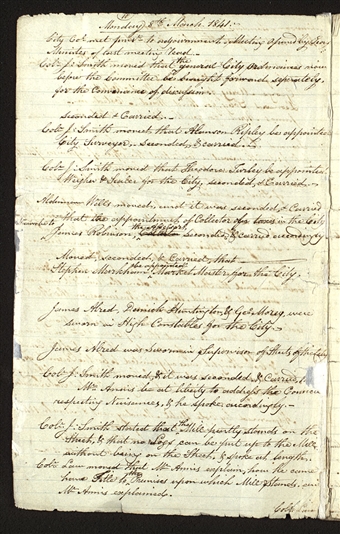 Monday 8th March, 1841.
City Col. met pursuant to adjournment. Meeting opened by Prayer
Minutes of last meeting read.
Colr. J. Smith moved that the general City Ordinances now
before the Committee be brought forward seperately
for the convenience of discussion
seconded & Carried.
Colr. J. Smith moved, that Alanson Ripley be appointed
City Surveyor, seconded, & carried.
Colr. J. Smith moved that Theodore Turley be appointed
Weigher & Sealer for the City, seconded, & Carried.
Alderman Wells moved, and it was seconded & Carried
that the appointment of Collector for the City
James Robinson, the Assessor, seconded, & carried accordingly
Moved, seconded, & Carried, that
Stephen Markham be appointed Market Master for the City.
James Alred, Dimick Huntington, & Geo. Morey, were
sworn in High Constables for the City.
James Alred was sworn in Supervisor of Streets of the City
Colr. J. Smith moved, & it was seconded & Carried
Mr. Annis be at liberty to address the Council
respecting Nuisances, & he spoke accordingly.
Colr. J. Smith stated that Mill partly stands on the
Street, & that no Logs can be put up to the Mill,
without being on the Street, & spoke at length.
Colr. Law moved that Mr. Annis explain, how he came
have Titles to the Premises upon which Mill Stands, and
Mr. Annis explained.